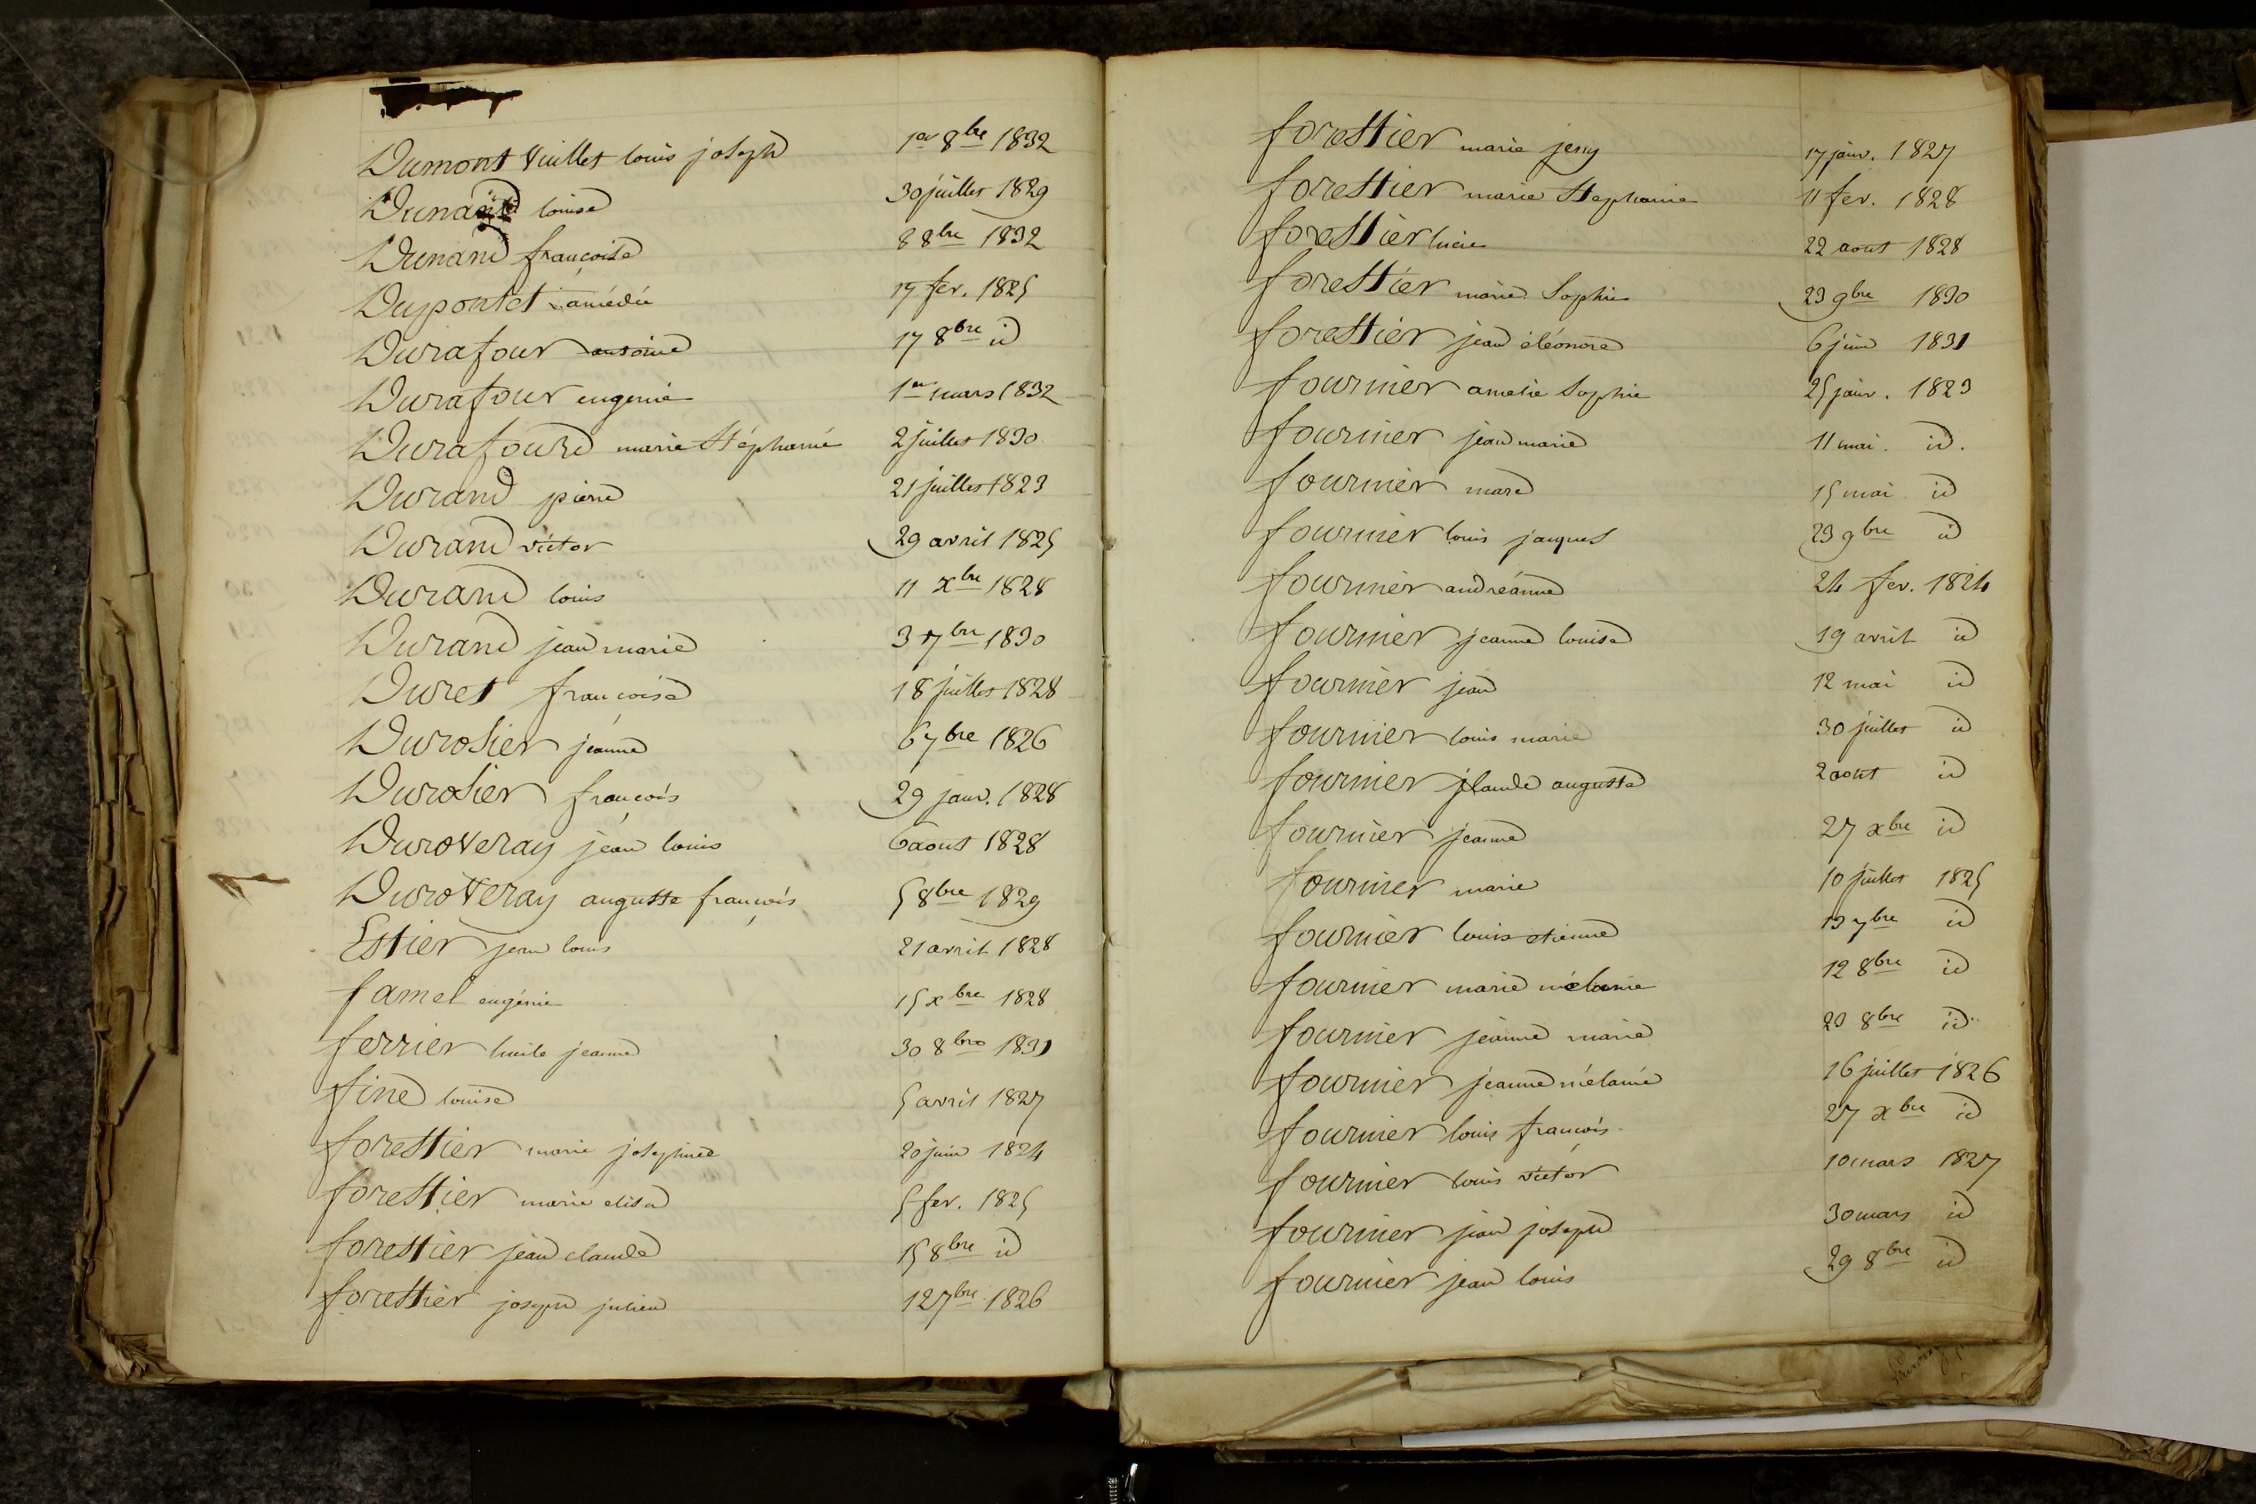 Dumont Vuillet louis joseph 1er 8bre 1832
Dunand louise 30 juillet 1829
Dunand françoise 8 8bre 1832
Dupontet amédée 17 fev. 1825
Durafour antoine 17 8bre id
Durafour eugenie 1er mars 1832
Durafourd marie Stéphanie 2 juillet 1830
Durand pierre 21 juillet 1823
Durand victor 29 avril 1825
Durand louis 11 xbre 1828
Durand jean marie 3 7bre 1830
Duret françoise 18 juillet 1828
Durosier jeanne 6 7bre 1826
Durosier françois 29 janv. 1828
Duroveray jean louis 6 aout 1828
Duroveray auguste françois 5 8bre 1829
Estier jean louis 21 avril 1828
famel eugénie 15 xbre 1828
ferrier lucile jeanne 30 8bre 1831
fine louise 5 avril 1827
forestier marie josephine 20 juin 1824
forestier marie elisa 5 fev. 1825
forestier jean claude 15 8bre id
forestier joseph julien 12 7bre 1826
forestier marie jeny 17 janv. 1827
forestier marie Stephanie 11 fev. 1828
forestier lucie 22 aout 1828
forestier marie Sophie 23 9bre 1830
forestier jean éléonore 6 juin 1831
fournier amelie Sophie 25 janv. 1823
fournier jean marie 11 mai id.
fournier marc 15 mai id
fournier louis jacques 23 9bre id
fournier andréanne 24 fev. 1824
fournier jeanne louise 19 avril id
fournier jean 12 mai id
fournier louis marie 30 juillet id
fournier claude auguste 2 aout id
fournier jeanne 27 xbre id
fournier marie 10 juillet 1825
fournier louis etienne 13 7bre id
fournier marie mélanie 12 8bre id
fournier jeanne marie 20 8bre id
fournier jeanne mélanie 16 juillet 1826
fournier louis françois 27 xbre id
fournier louis victor 10 mars 1827
fournier jean joseph 30 mars id
fournier jean louis 29 8bre id